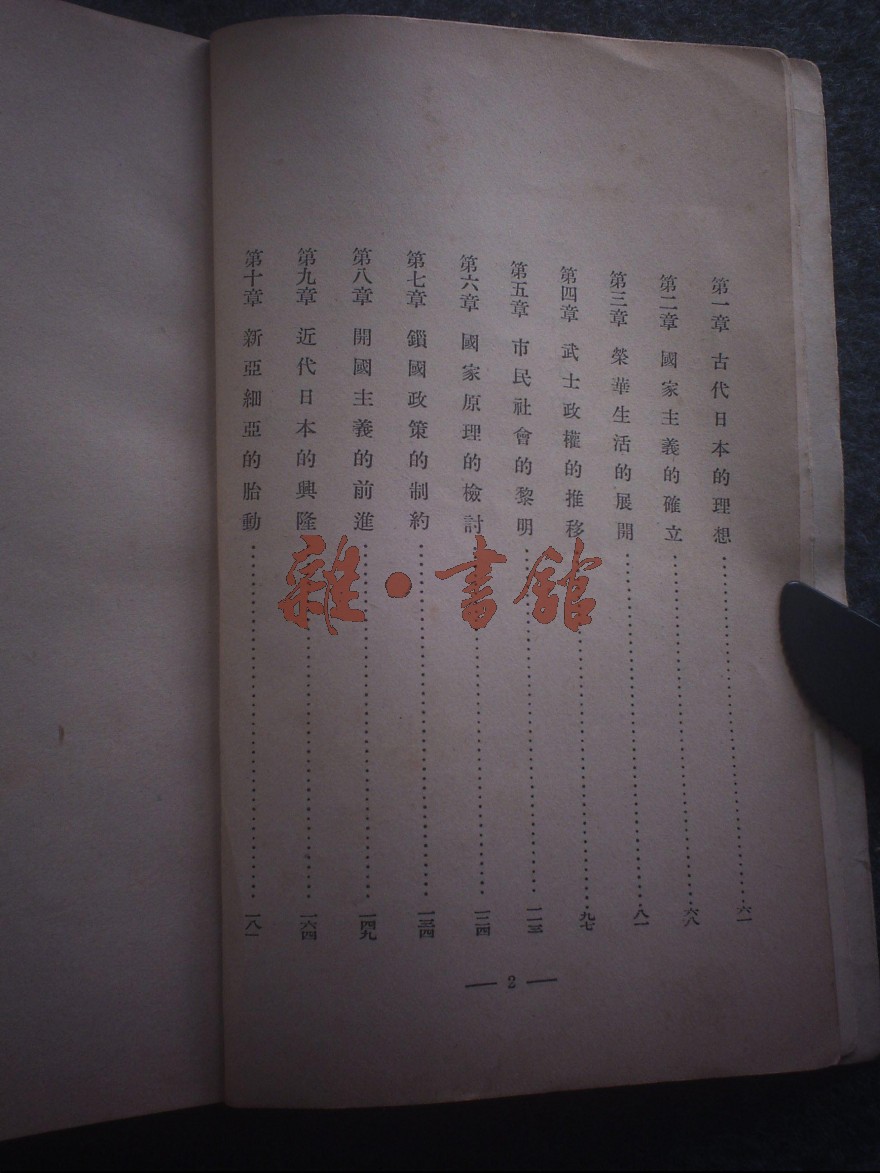 第一章 古代日本的理想……六一
第二章 國家主義的確立……六八
第三章 榮華生活的展開……八一
第四章 武士政權的推移……九七
第五章 市民社會的黎明……一一三
第六章 國家原理的檢討……一二四
第七章 鎖國政策的制約……一三四
第八章 開國主義的前進……一四九
第九章 近代日本的興隆……一六四
第十章 新亞細亞的胎動……一八一
— 2 —
雜·書館